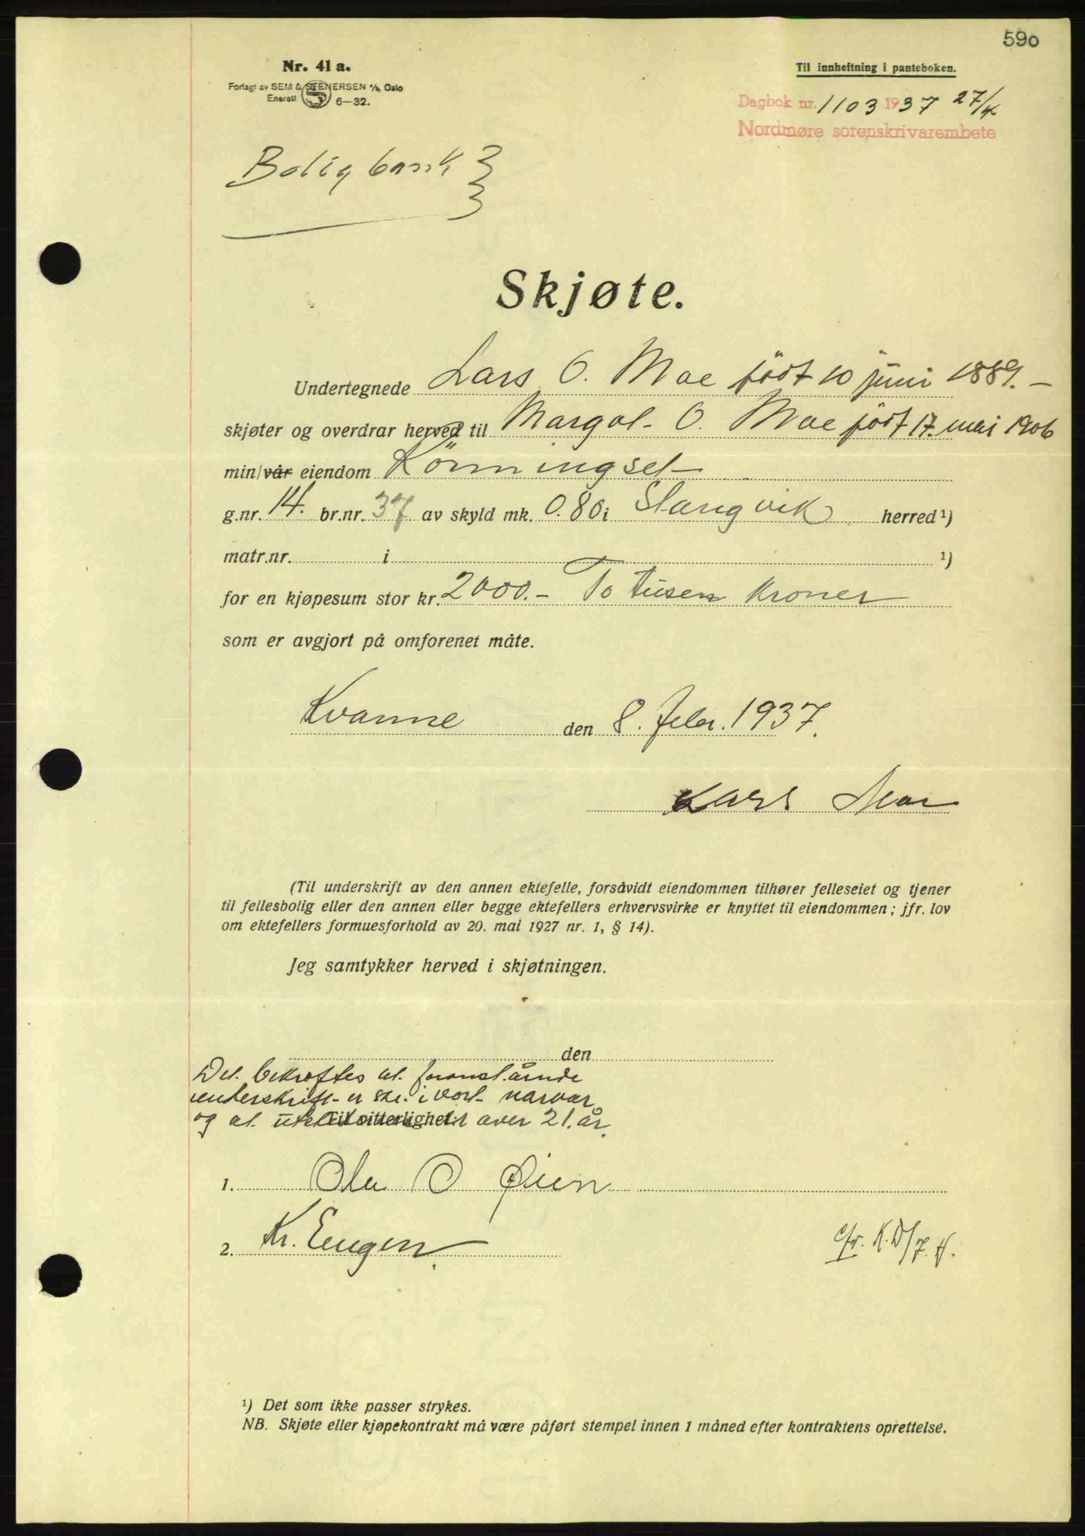 590
Nr. 41 a.
Forlagt av SEM & STENERSEN A/S, Oslo
Enerett 6—32.
Til innheftning i panteboken.
Dagbok nr. 1103 1937 27/4
Nordmøre sorenskrivarembete
Boligbank
Skjøte.
Undertegnede Lars O. Moe født 10 juni 1889. —
skjøter og overdrar herved til Margot O. Moe født 17. mai 1906
min/vår eiendom
g.nr. 14. br.nr. 37 av skyld mk. 0.80 i Stangvik herred ¹)
matr.nr. i ¹)
for en kjøpesum stor kr. 2000.— To tusen kroner
som er avgjort på omforenet måte.
Kvanne den 8. febr. 1937.
Lars Moe
(Til underskrift av den annen ektefelle, forsåvidt eiendommen tilhører felleseiet og tjener
til fellesbolig eller den annen eller begge ektefellers erhvervsvirke er knyttet til eiendommen; jfr. lov
om ektefellers formuesforhold av 20. mai 1927 nr. 1, § 14).
Jeg samtykker herved i skjøtningen.
den
Det bekreftes at foranstående
underskrift er skr. i vort nærvær
og at er over 21. år.
Til vitterlighet:
1. Ola O Øien
2. Kr. Engen
cfr. K.D/7.
¹) Det som ikke passer strykes.
NB. Skjøte eller kjøpekontrakt må være påført stempel innen 1 måned efter kontraktens oprettelse.